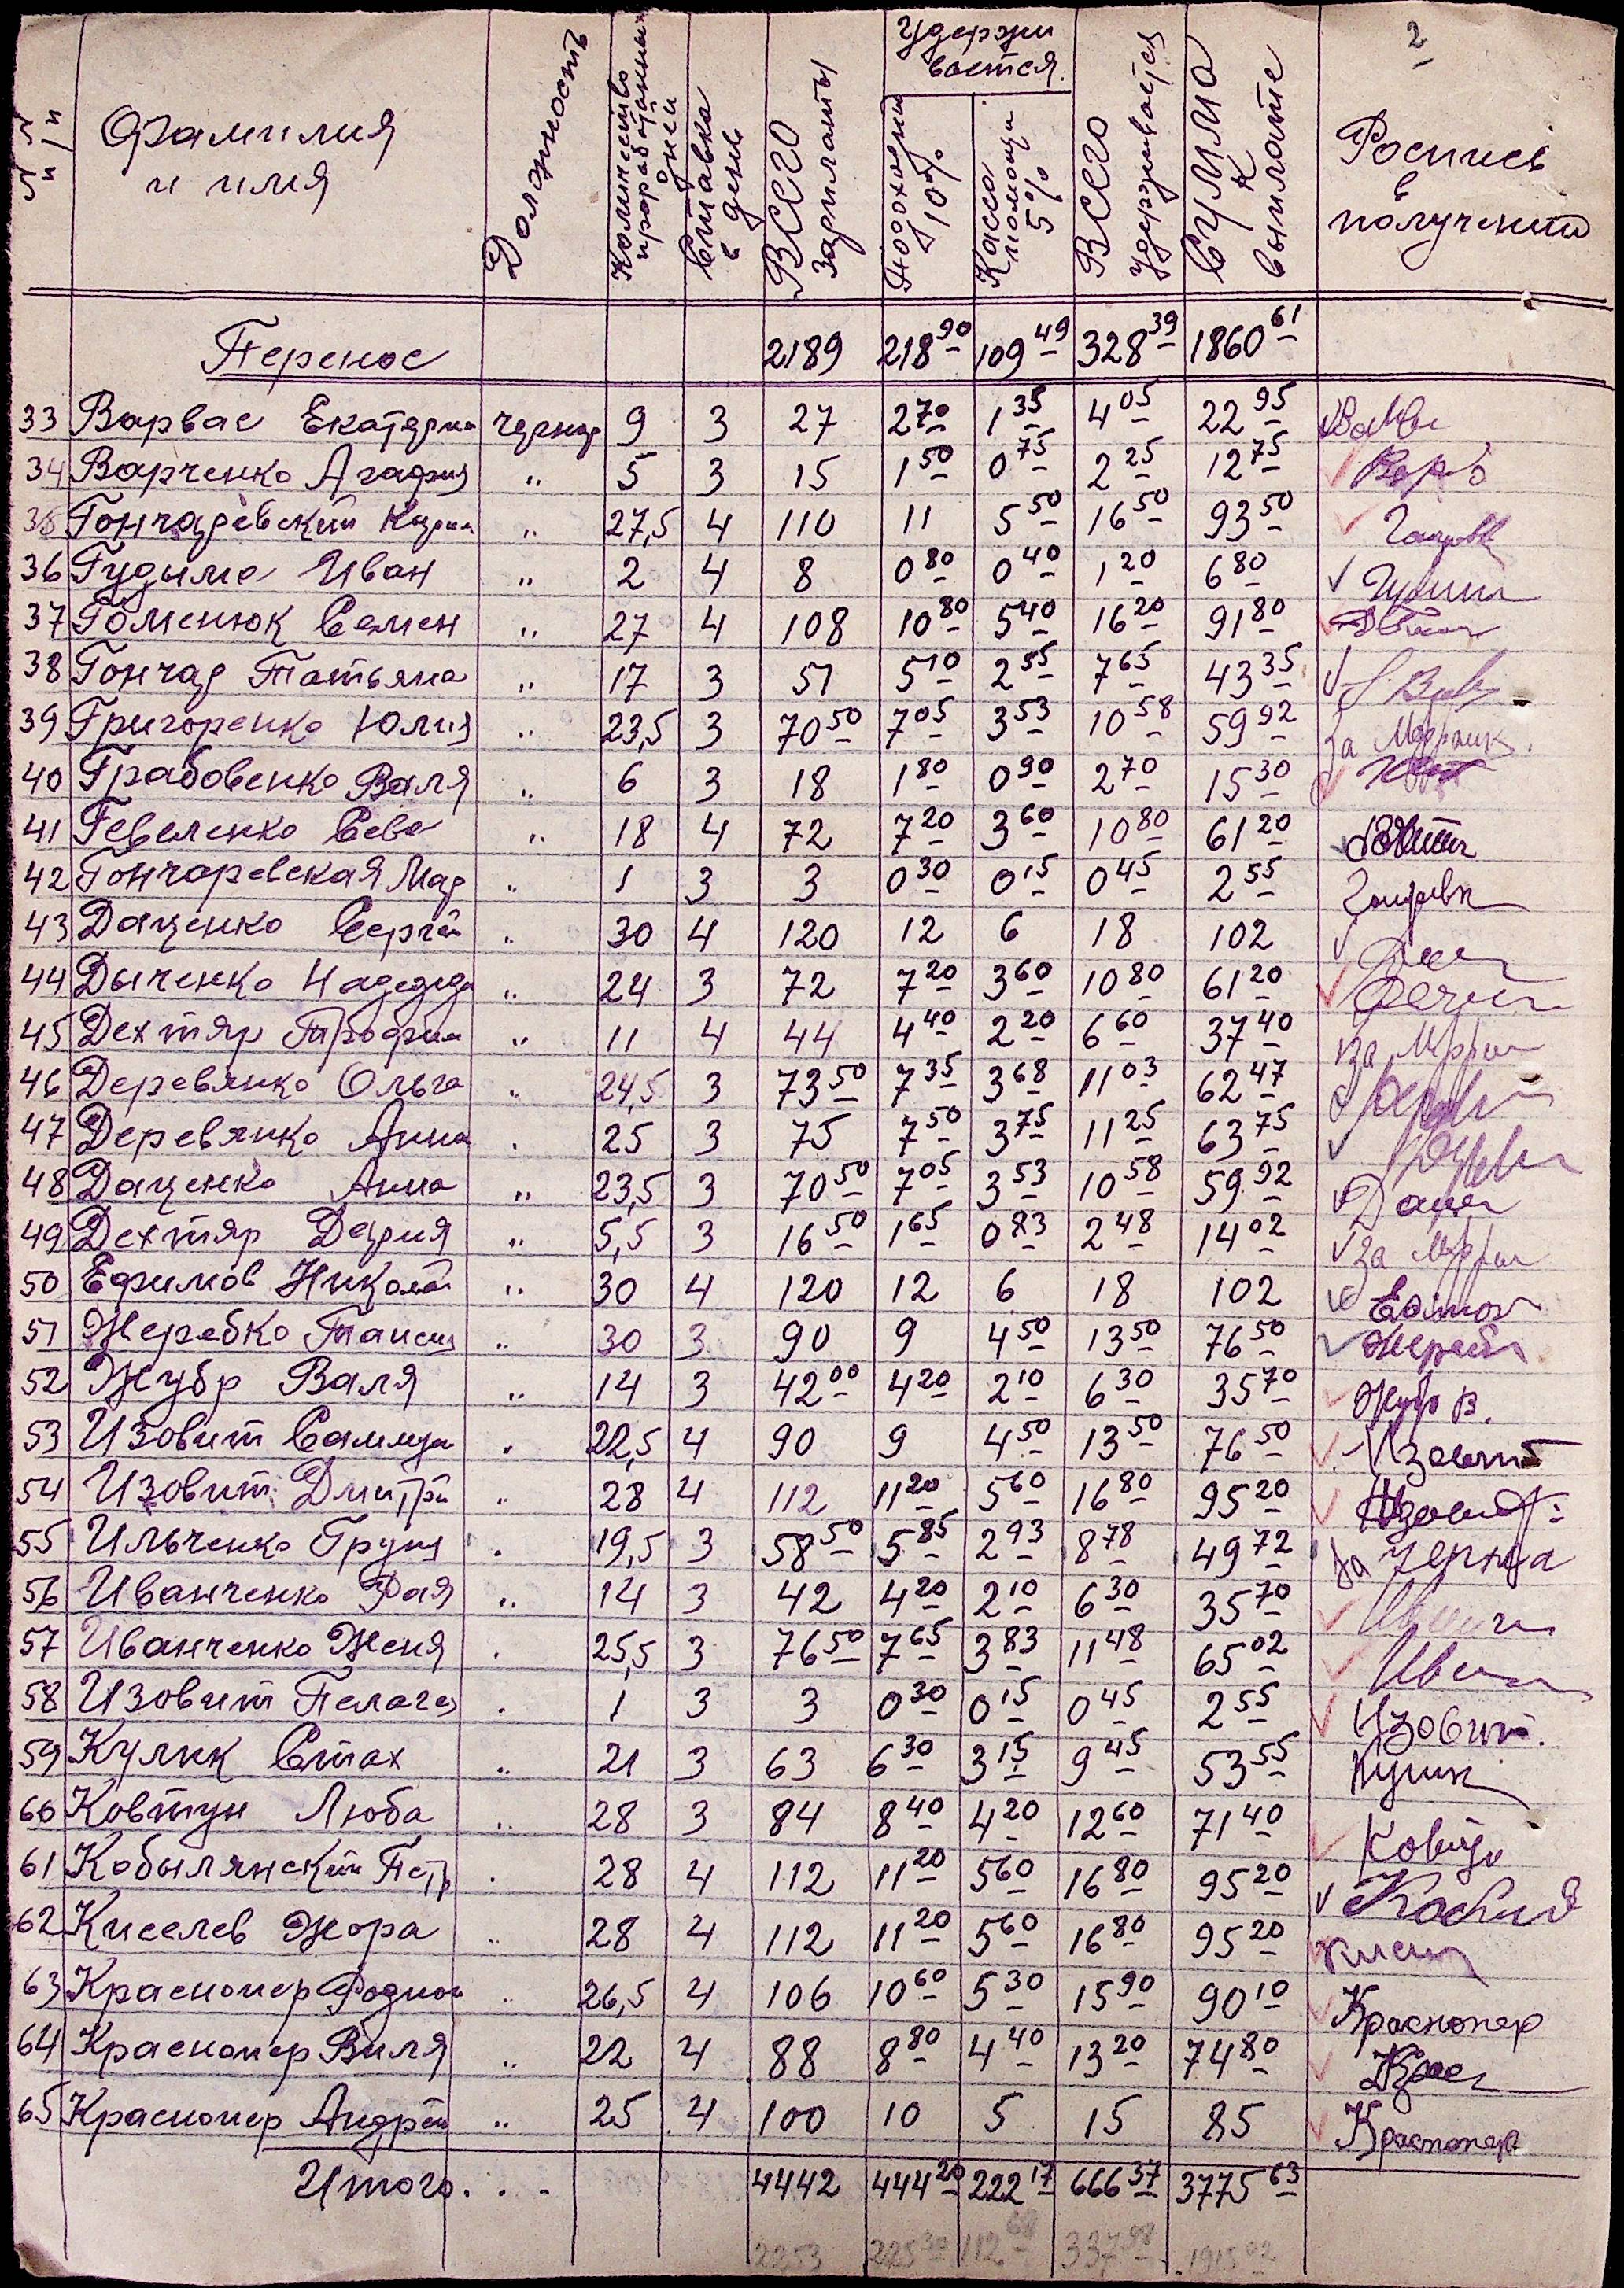 2
№№ п/п Фамилия и имя Должность Количество проработанных дней Ставка в день ВСЕГО зарплаты Удержи вается Подоходный 10% Касса помощи 5% ВСЕГО удерживается СУММА к выплате Роспись в получении
Перенос 2189 218 90 109 49 328 39 1860 61
33 Варвас Екатерина чернор 9 3 27 2 70 1 35 4 05 22 95
34 Варченко Агафия " 5 3 15 1 50 0 75 2 25 12 75
35 Гончаревский Кирил " 27,5 4 110 11 5 50 16 50 93 50
36 Гудыма Иван " 2 4 8 0 80 0 40 1 20 6 80
37 Гоменюк Семен " 27 4 108 10 80 5 40 16 20 91 80
38 Гончар Татьяна " 17 3 51 5 10 2 55 7 65 43 35
39 Григоренко Юлия " 23,5 3 70 50 7 05 3 53 10 58 59 92 за
40 Грабовенко Валя " 6 3 18 1 80 0 90 2 70 15 30
41 Гевеленко Сева " 18 4 72 7 20 3 60 10 80 61 20
42 Гончаревская Мар " 1 3 3 0 30 0 15 0 45 2 55
43 Даценко Сергей " 30 4 120 12 6 18 102
44 Дыченко Надежда " 24 3 72 7 20 3 60 10 80 61 20
45 Дехтяр Трофим " 11 4 44 4 40 2 20 6 60 37 40 за
46 Деревянко Ольга " 24,5 3 73 50 7 35 3 68 11 03 62 47
47 Деревянко Анна " 25 3 75 7 50 3 75 11 25 63 75
48 Даценко Анна " 23,5 3 70 50 7 05 3 53 10 58 59 92 Даце
49 Дехтяр Дария " 5,5 3 16 50 1 65 0 83 2 48 14 02 за
50 Ефимов Николай " 30 4 120 12 6 18 102 Ефимов
51 Жеребко Таисия " 30 3 90 9 4 50 13 50 76 50
52 Жубр Валя " 14 3 42 00 4 20 2 10 6 30 35 70 Жубр В.
53 Изовит Саммуил " 22,5 4 90 9 4 50 13 50 76 50 Изовит
54 Изовит Дмитрий " 28 4 112 11 20 5 60 16 80 95 20
55 Ильченко Груня " 19,5 3 58 50 5 85 2 93 8 78 49 72 за
56 Иванченко Рая " 14 3 42 4 20 2 10 6 30 35 70
57 Иванченко Женя " 25,5 3 76 50 7 65 3 83 11 48 65 02
58 Изовит Пелагея " 1 3 3 0 30 0 15 0 45 2 55 Изовит.
59 Кулик Стах " 21 3 63 6 30 3 15 9 45 53 55 Кулик
60 Ковтун Люба " 28 3 84 8 40 4 20 12 60 71 40 Ковтун
61 Кобылянский Петр " 28 4 112 11 20 5 60 16 80 95 20
62 Киселев Жора " 28 4 112 11 20 5 60 16 80 95 20
63 Краснопер Родион " 26,5 4 106 10 60 5 30 15 90 90 10 Краснопер
64 Краснопер Виля " 22 4 88 8 80 4 40 13 20 74 80
65 Краснопер Андрей " 25 4 100 10 5 15 85 Краснопер
Итого. . - 4442 444 20 222 17 666 37 3775 63
2253 225 30 112 68 337 98 1915 02